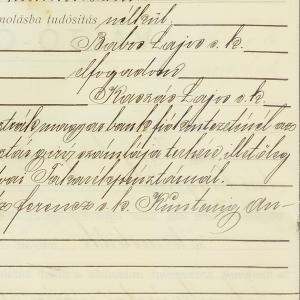 molásba tudósítás nélkül,
Babos Lajos s. k.
elfogadom
Kaszás Lajos s. k.
osztrák magyar bank fiókintézeténél az
giró számlája terhére, illetőleg
Takarékpénztárnál.
ferencz s. k. Künstenig An-